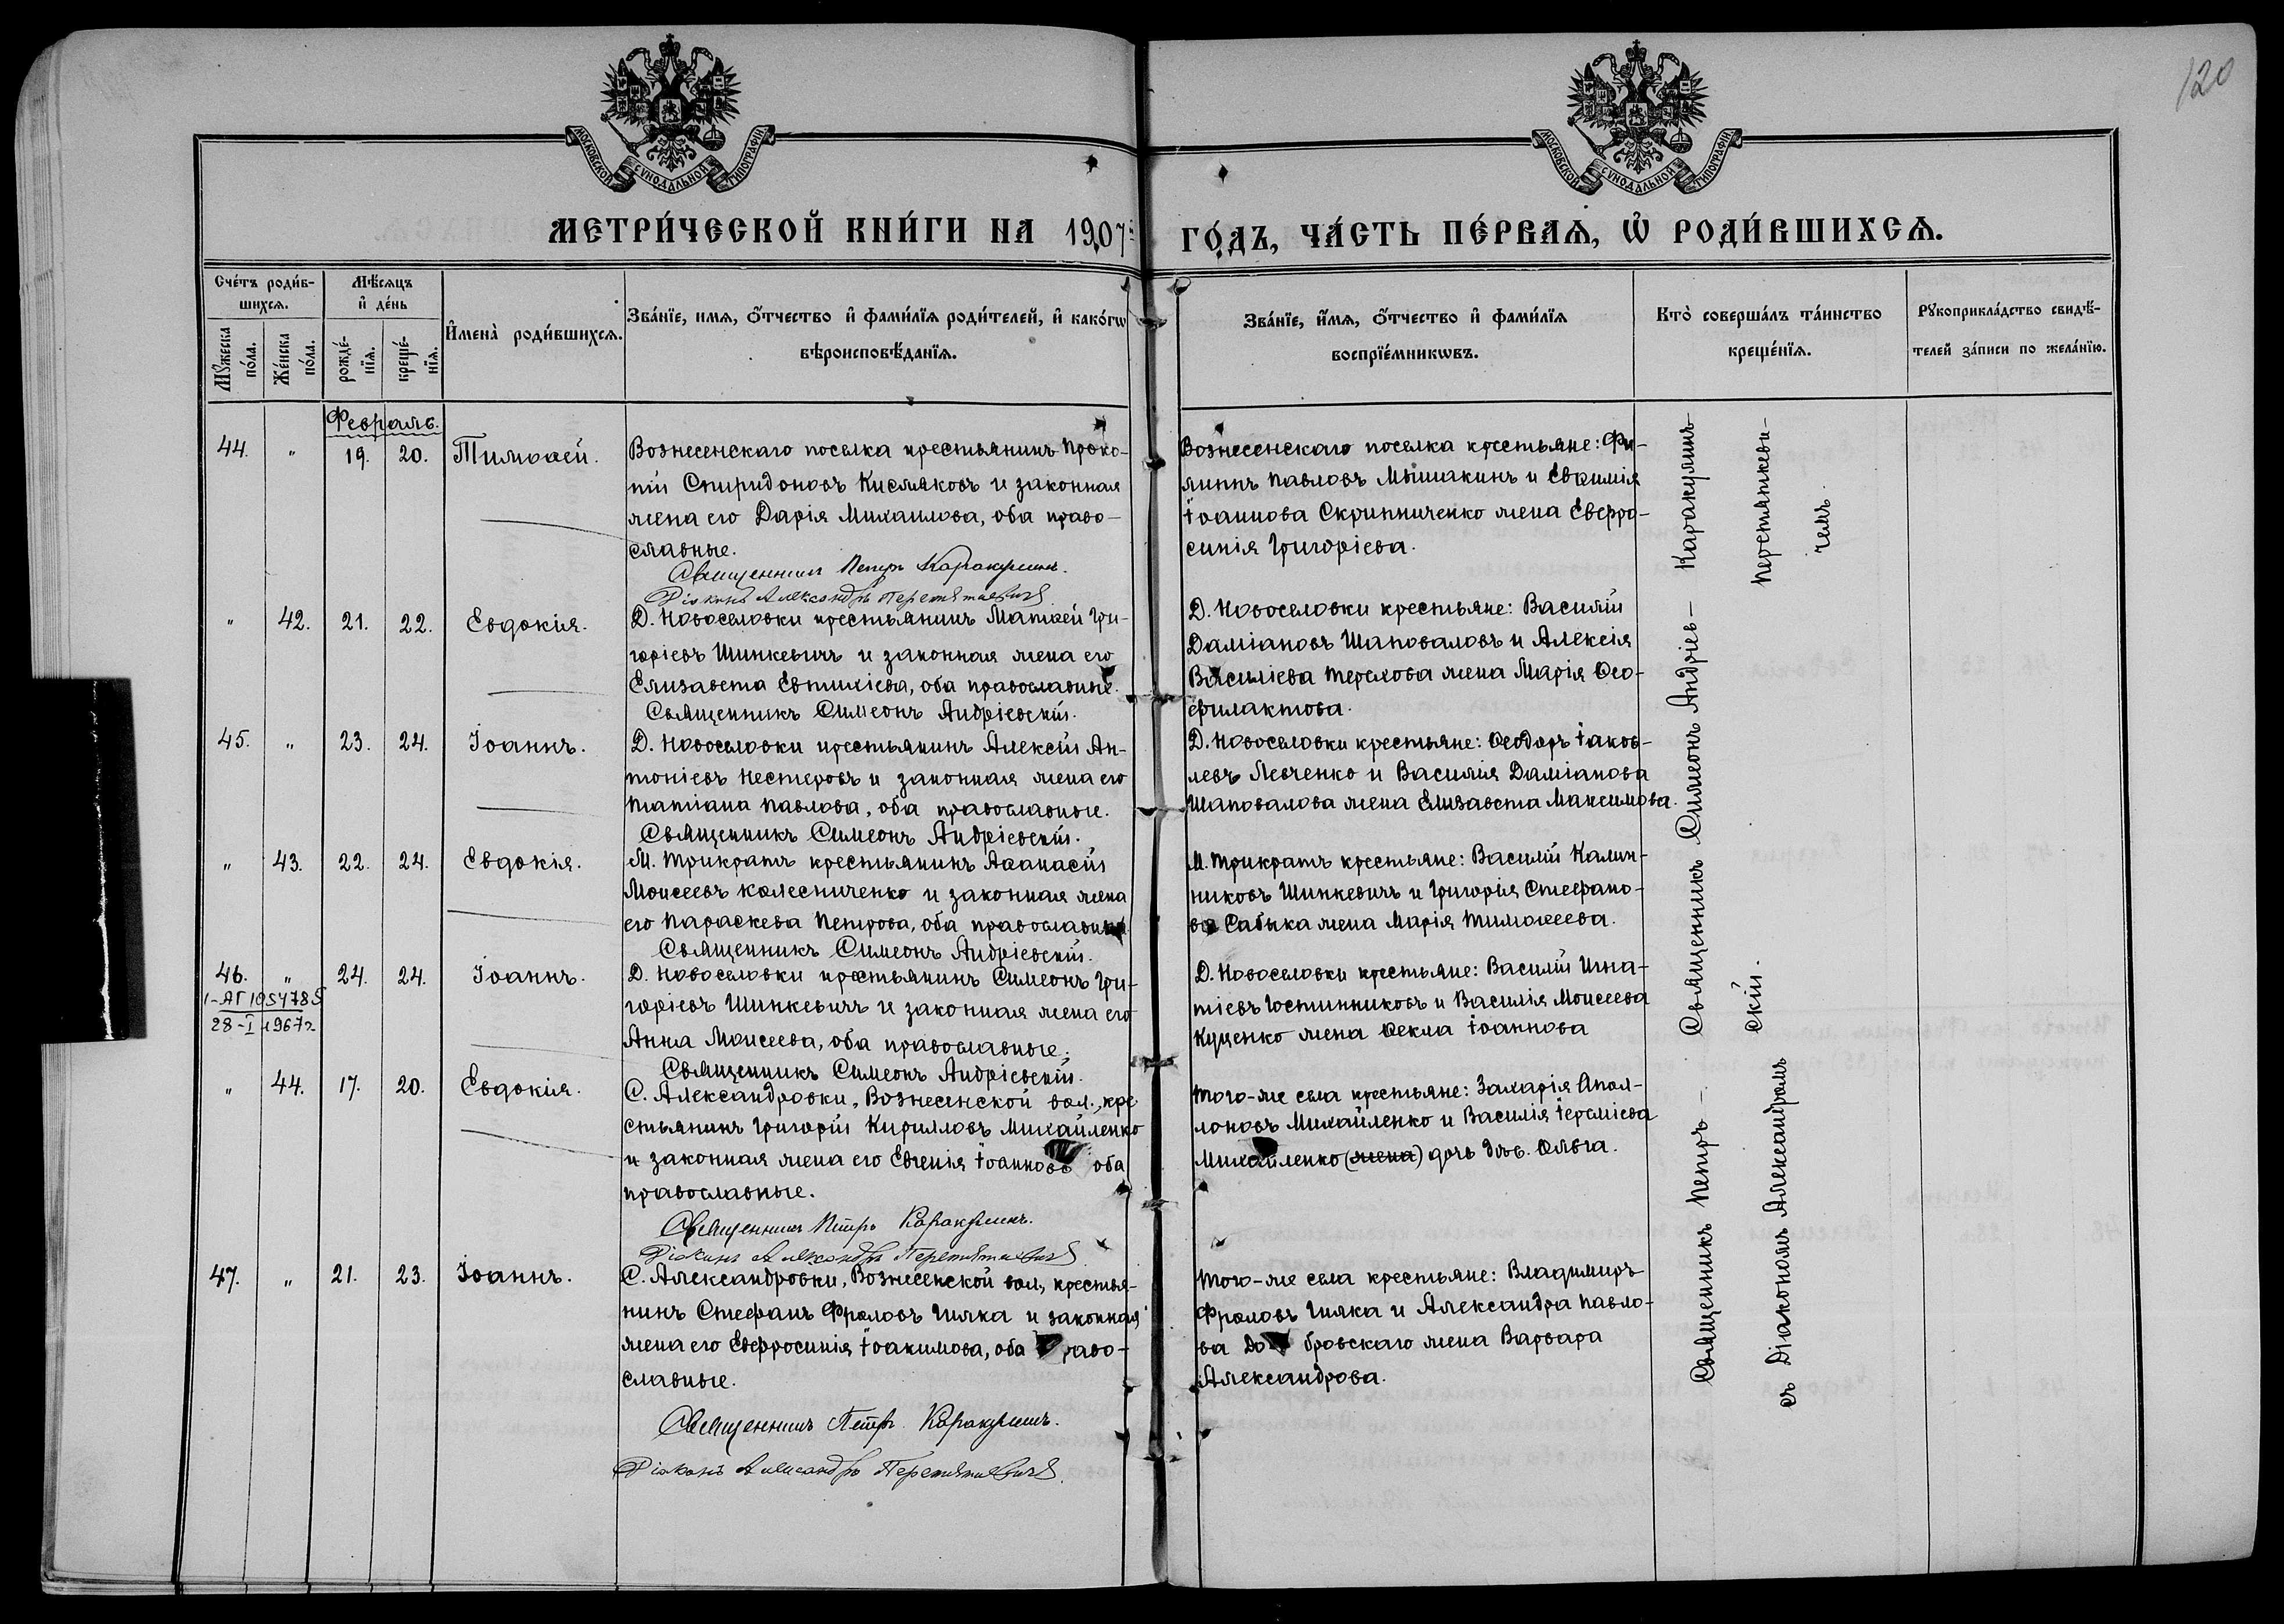 120
МОСКОВСКОЙ СѴНОДАЛЬНОЙ ТИПОГРАФІИ
МОСКОВСКОЙ СѴНОДАЛЬНОЙ ТИПОГРАФІИ
МЕТРИ́ЧЕСКОЙ КНИ́ГИ НА 1907 ГО́ДЪ, ЧА́СТЬ ПЕ́РВАѦ, Ѡ҆ РОДИ́ВШИХСѦ.
Сче́тъ роди́в-
шихсѧ.
Мꙋ́жеска по́ла.
Же́нска по́ла.
Мѣ́сѧцъ
и҆ де́нь
рожде́-
нїѧ.
креще́-
нїѧ.
И҆мена̀ роди́вшихсѧ.
Зва́нїе, имѧ, ѻ҆́тчество и҆ фами́лїѧ роди́телей, и҆ како́гѡ
вѣроисповѣ́данїѧ.
Зва́нїе, и҆́мѧ, ѻ҆́тчество и҆ фами́лїѧ
воспрїе́мникѡвъ.
Кто̀ соверша́лъ та́инство
креще́нїѧ.
Рꙋкоприкла́дство свидѣ́-
телей за́писи по жела́нїю.
Февраль.
44. " 19. 20. Тимоѳей.
Вознесенскаго поселка крестьянинъ Проко-
пій Спиридоновъ Кисляковъ и законная
жена его Дарія Михаилова, оба право-
славные.
Священникъ Петръ Каракулинъ.
Діаконъ Александръ Перетяткевичъ
Вознесенскаго поселка крестьяне: Фи-
липпъ Павловъ Мышакинъ и Евѳимія
Іоаннова Скрипниченко жена Евфро-
синія Григоріева.
" 42. 21. 22. Евдокія.
Д. Новоселовки крестьянинъ Матѳей Гри-
горіевъ Шинкевичъ и законная жена его
Елизавета Евтихіева, оба православные.
Священникъ Симеонъ Андріевскій.
Д. Новоселовки крестьяне: Василій
Даміановъ Шаповаловъ и Алексія
Василіева Терехова жена Марія Ѳео-
филактова.
45. " 23. 24. Іоаннъ.
Д. Новоселовки крестьянинъ Алексій Ан-
тоніевъ Нестеровъ и законная жена его
Татіана Павлова, оба православные.
Священникъ Симеонъ Андріевскій.
Д. Новоселовки крестьяне: Ѳеодоръ Іаков-
левъ Левченко и Василія Даміанова
Шаповалова жена Елизавета Максимова.
" 43. 22. 24. Евдокія.
М. Трикратъ крестьянинъ Аѳанасій
Моисеевъ Колесниченко и законная жена
его Параскева Петрова, оба православные
Священникъ Симеонъ Андріевскій.
М. Трикратъ крестьяне: Василій Калин-
никовъ Шинкевичъ и Григорія Стефано-
ва Сабыка жена Марія Тимоѳеева.
46. " 24. 24. Іоаннъ.
1-АГ 1054785
28-I 1967г.
Д. Новоселовки крестьянинъ Симеонъ Гри-
горіевъ Шинкевичъ и законная жена его
Анна Моисеева, оба православные.
Священникъ Симеонъ Андріевскій.
Д. Новоселовки крестьяне: Василій Игна-
тіевъ Гостинниковъ и Василія Моисеева
Куценко жена Ѳекла Іоаннова
" 44. 17. 20. Евдокія.
С. Александровки, Вознесенской вол., кре
стьянинъ Григорій Кирилловъ Михайленко
и законная жена его Евгенія Іоаннова оба
православные.
Священникъ Петръ Каракулинъ.
Діаконъ Александръ Перетяткевичъ
Того-же села крестьяне: Захарія Апол-
лоновъ Михайленко и Василія Іереміева
Михайленко (жена) дочь дѣв. Ольга.
47. " 21. 23. Іоаннъ.
С. Александровки, Вознесенской вол., крестья-
нинъ Стефанъ Фроловъ Гилка и законная
жена его Евфросинія Іоакимова, оба право-
славные.
Священникъ Петръ Каракулинъ.
Діаконъ Александръ Перетяткевичъ.
Того-же села крестьяне: Владимиръ
Фроловъ Гилка и Александра Павло-
ва До бровскаго жена Варвара
Александрова.
Священникъ Петръ – Священникъ Симеонъ Андріев – Каракулинъ
съ Діакономъ Александромъ скій. Перетяткеви-
чемъ.